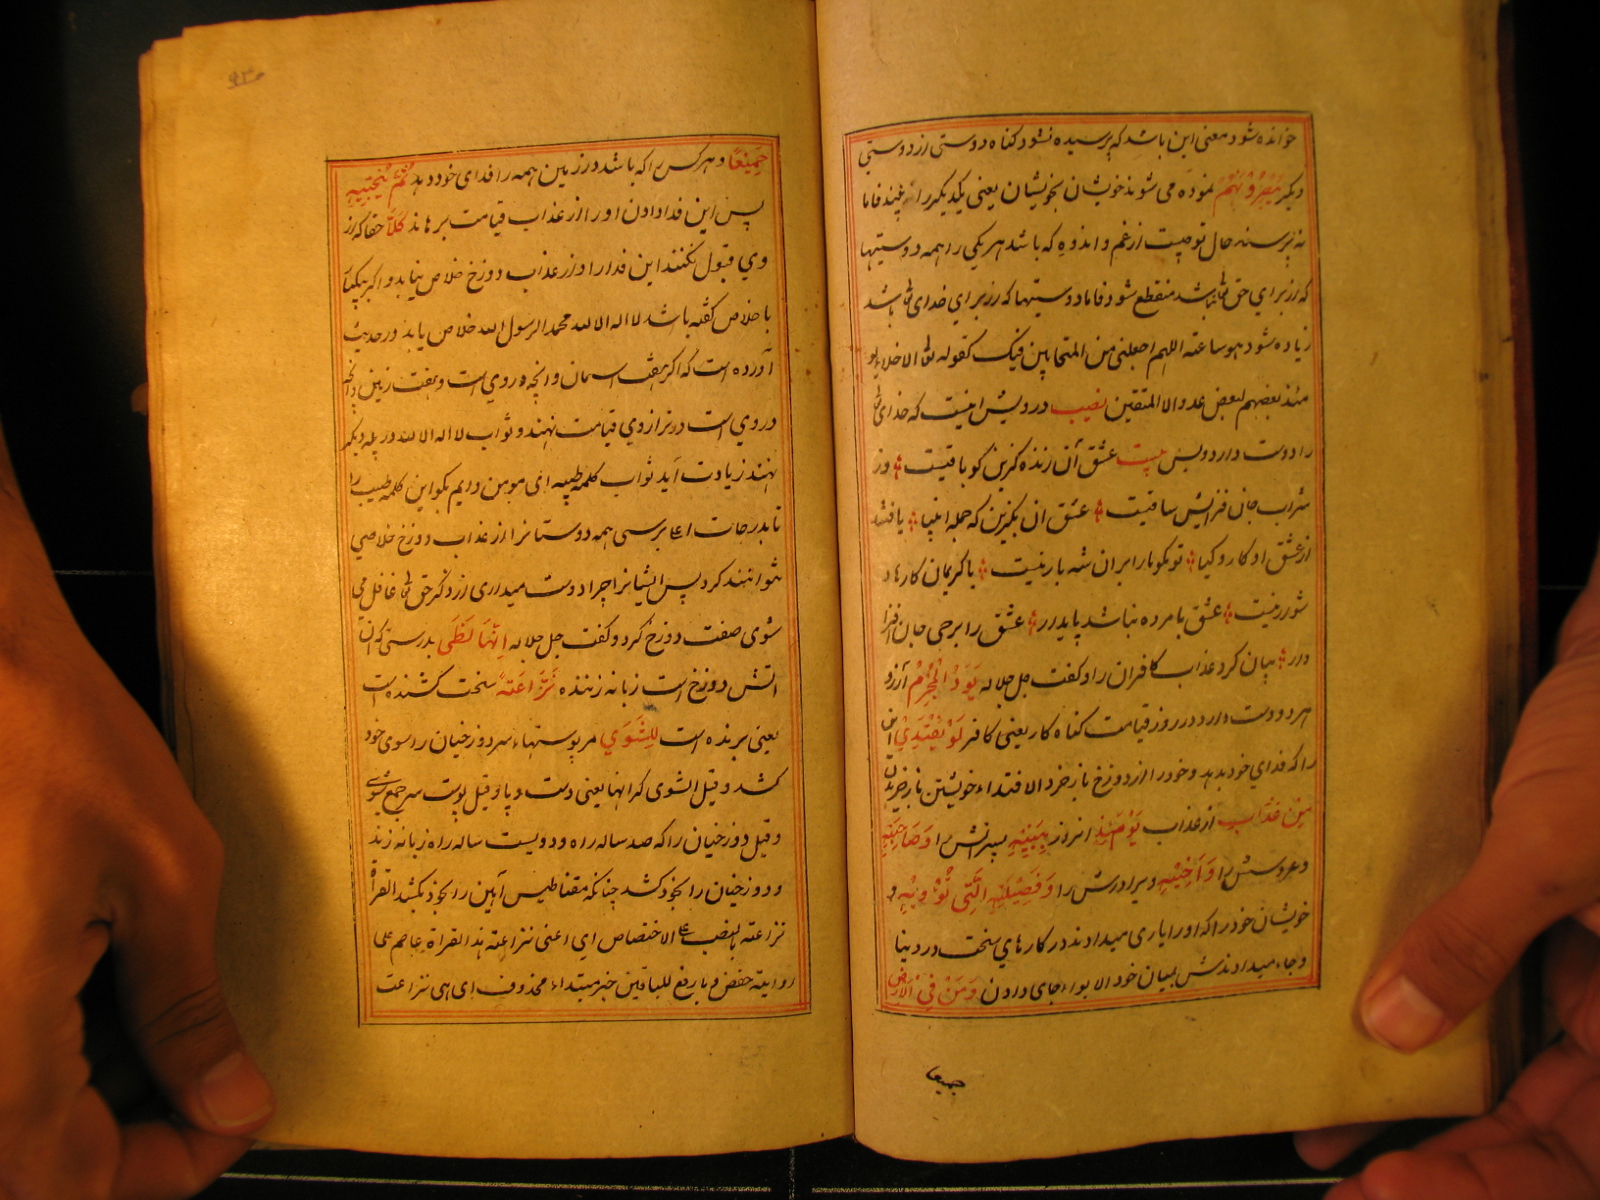 خوانده شود معنی این باشد که پرسیده نشود کناه دوستی از دوستی
دیکر یُبَصَّرُونَهُمْ نموده می شوند خویشان بخویشان یعنی یکدیکر را بینند فاما
نه پرسند حال تو چیست از غم و اندوه که باشد هر یکی را همه دوستیها
که از برای حق تعالی نباشد منقطع شود فاما دوستیها که از برای خدای تعالی باشد
زیاده شود هو ساعته اللهم اجعلنی من المتحابین فیک کقوله تعالی الاخلاء یو
مئذ بعضهم لبعض عدو الا المتقین نصیب درویش اینست که خدای تعالی
را دوست دارد و بس بیت عشق آن زنده کزین کو باقیست وز
شراب جان فزایش ساقیست عشق ان بکزین که جمله انبیا یافتند
از عشق او کار و کیا تو مکو ما را بران شه بار نیست با کریمان کارها د
شوار نیست عشق با مرده نباشد پایدار عشق را بر حی جان افزا
دار بیان کرد عذاب کافران را و کفت جل جلاله یَوَدُّ الْمُجْرِمُ آرزو
برد و دوست دارد در روز قیامت کناه کار یعنی کافر لَوْ یَفْتَدِیْ این
را که فدای خود بدهد و خود را از دوزخ باز خرد الافتداء خویشتن باز خریدن
مِنْ عَذَابِ از عذاب یَوْمَئِذٍ انروز بِبَنِیْهِ پسرانش را وَصَاحِبَتِهِ
و عروسش را وَاَخِیْهِ و برادرش را وَفَصِیْلَتِهِ الَّتِی تُؤْوِیْهِ و
خویشان خود را که او را یاری میدادند در کارهای سخت در دنیا
و جاء میدادندش بمیان خود الایواء جای دادن وَمَنْ فِی الْاَرْضِ
جمیعا
۹۳۰
جَمِیْعًا و هر کس را که باشد در زمین همه را فدای خود دهد ثُمَّ یُنْجِیْهِ
پس این فدا دادن او را از عذاب قیامت برهاند کَلَّا حقا که از
وی قبول نکنند این فدا را و از عذاب دوزخ خلاص نیابد و اکر یکبار
با خلاص کفته باشد لا اله الا الله محمد الرسول الله خلاص یابد در حدیث
آورده است که اکر هفت اسمان و انچه در وی است و هفت زمین و انچه
در وی است در ترازوی قیامت نهند و ثواب لا اله الا الله در پله دیکر
نهند زیادت آید ثواب کلمه طیبه ای مومن دایم بکو این کلمه طیب را
تا بدرجات اعلی برسی همه دوستانرا از عذاب دوزخ خلاصی
نتوانند کرد پس ایشانرا چرا دوست میداری از ذکر حق تعالی غافل می
شوی صفت دوزخ کرد و کفت جل جلاله اِنَّهَا لَظَی بدرستی که ان
اتش دوزخ است زبانه زننده نَزَّاعَةً سخت کشنده است
یعنی برنده است لِلشَّوَی مر پوستهاء سر دوزخیان را سوی خود
کشد و قیل الشوی کرانها یعنی دست و پا و قیل پوست سر جمع شوی
و قیل دوزخیان را که صد ساله راه و دویست ساله راه زبانه زند
و دوزخیان را بخود کشد چنانکه مقناطیس آهین را بخود بکشد القراة
نزاعة بنصب علی الاختصاص ای اعنی نزاعة هذا القراة عاصم علی
روایة حفص و با رفع للباقین خبر مبتداء محذوف ای هی نزاعت